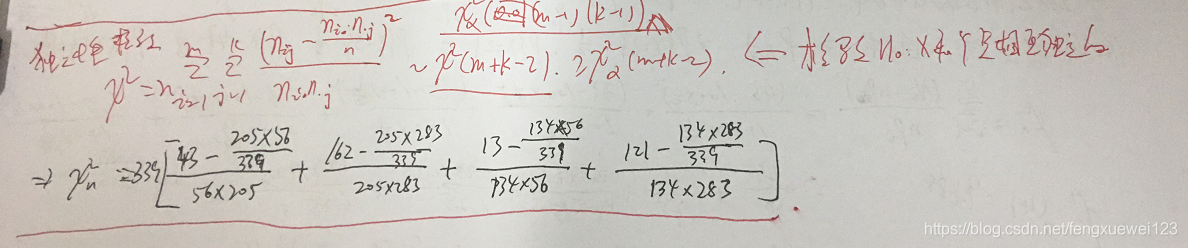 独立性检验 χ² = n Σ_{i=1}^{m} Σ_{j=1}^{k} (n_{ij} - n_{i.}n_{.j}/n)² / (n_{i.}n_{.j}) ~ χ²(m+k-2). ≥ χ²_α(m+k-2). ⇐ 拒绝 H₀: X和Y是相互独立的
χ²_α((m-1)(k-1))
⇒ χ²_n = 339[ (43 - 205×56/339)/(56×205) + (162 - 205×283/339)/(205×283) + (13 - 134×56/339)/(134×56) + (121 - 134×283/339)/(134×283) ].
https://blog.csdn.net/fengxuewei123